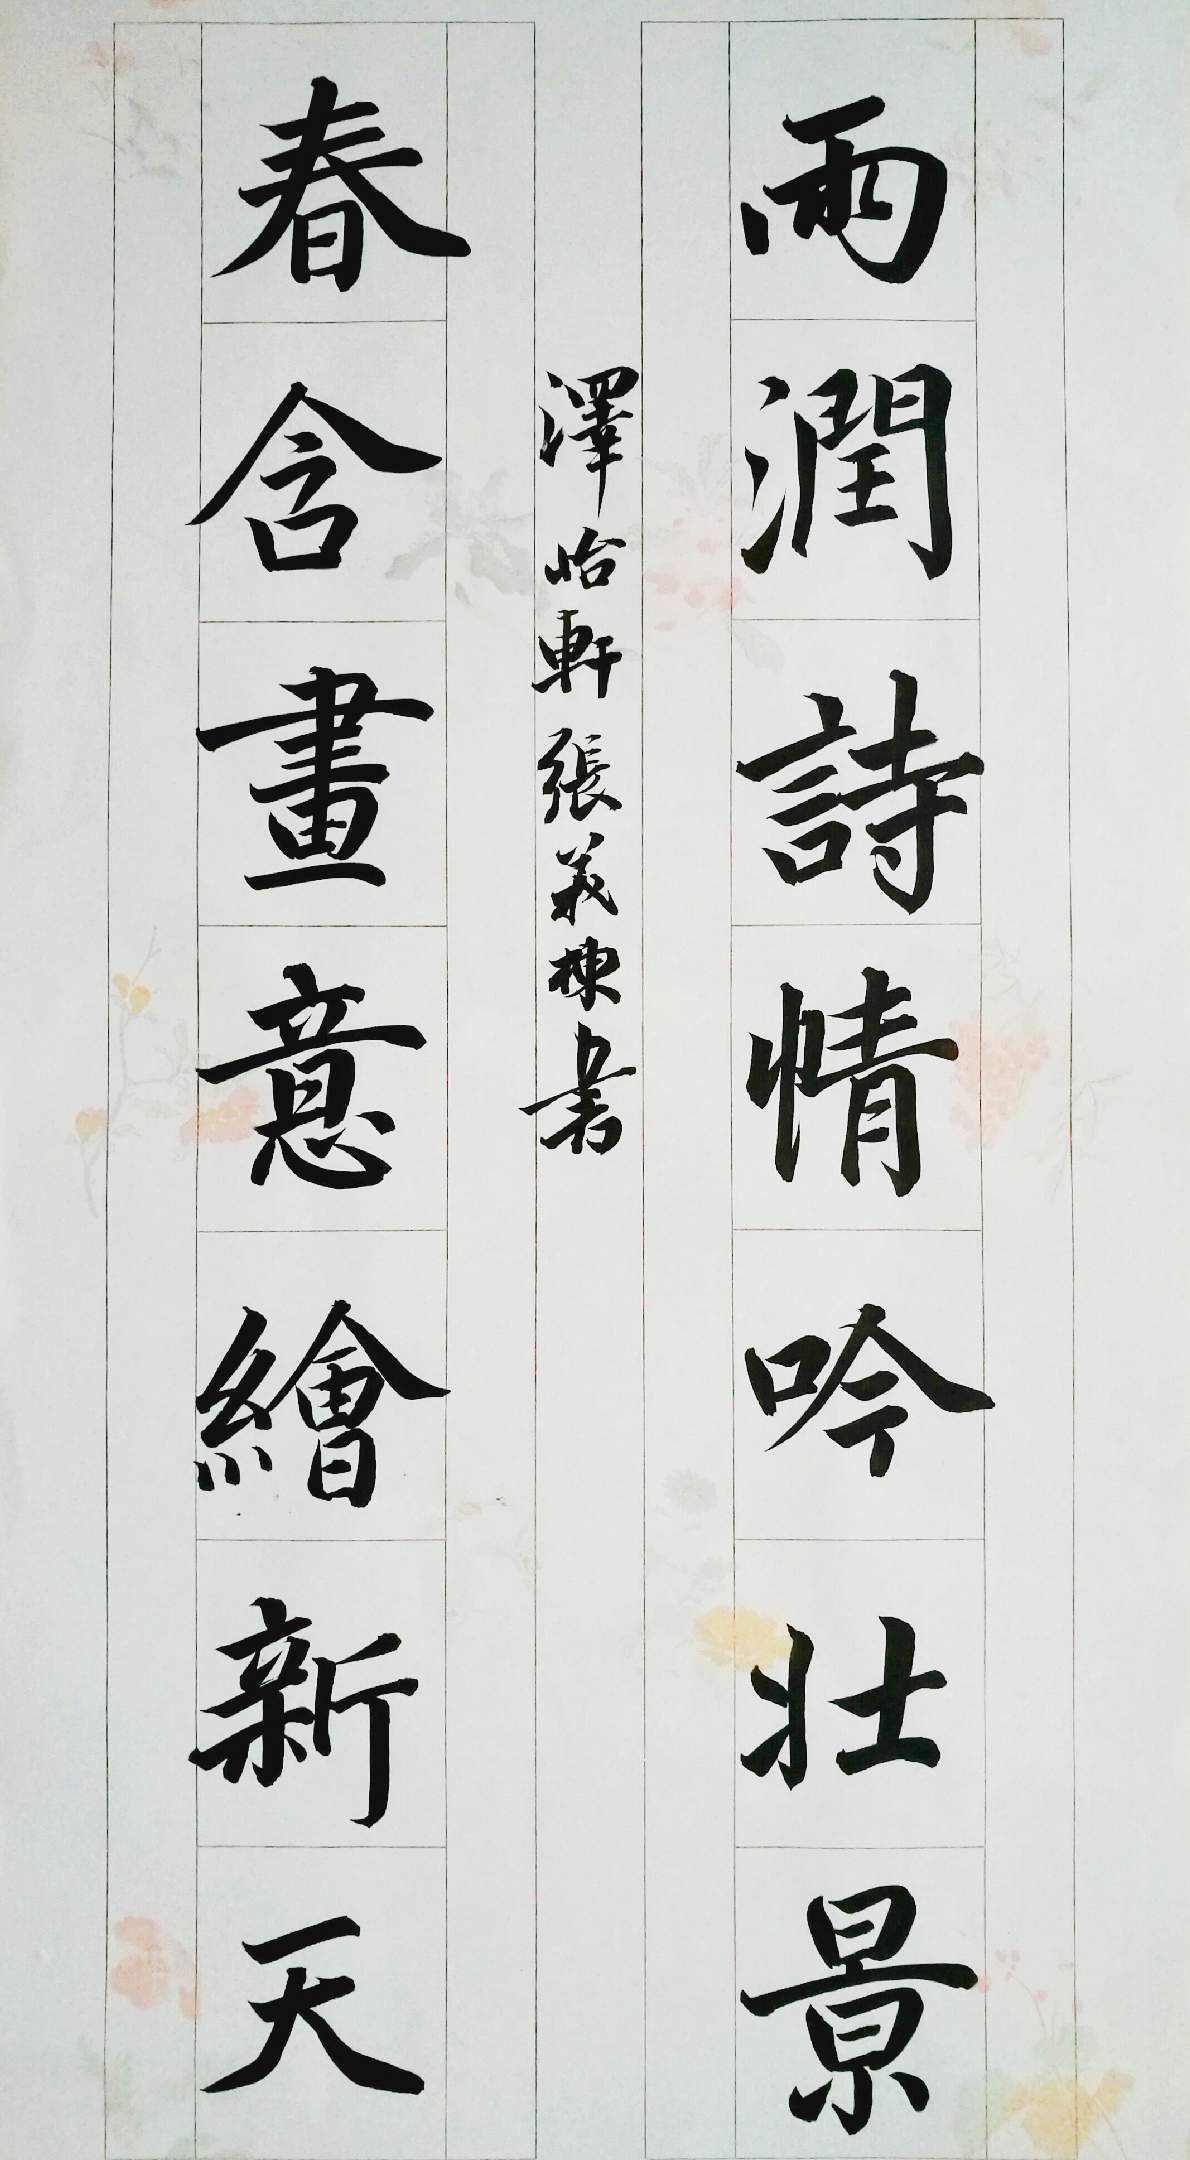 雨潤詩情吟壯景
春含畫意繪新天
澤怡軒張義棟书